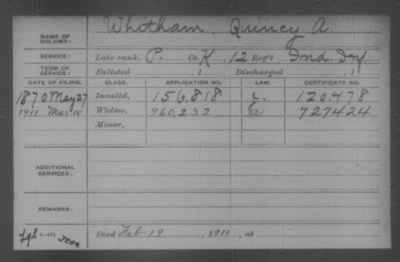 NAME OF SOLDIER: Whotham, Quincy A.
SERVICE: Late rank, P. Co. K, 12 Reg't Ind. Inf.
TERM OF SERVICE: Enlisted , 1 Discharged , 1
DATE OF FILING. CLASS. APPLICATION NO. LAW. CERTIFICATE NO.
1870 May 27 Invalid, 156.818 120.478
1911 Mar 10 Widow, 960,232 727424
Minor,
ADDITIONAL SERVICES:
REMARKS:
Died Feb 19, 1911, at